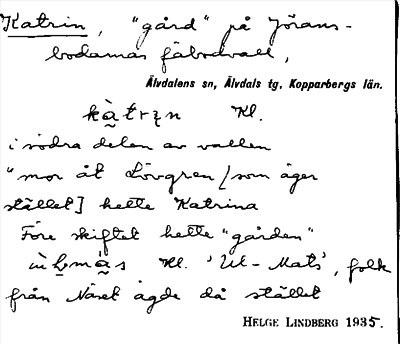 Katrin, "gård" på Jörans-
bodarnas fäbodvall,
Älvdalens sn, Älvdals tg, Kopparbergs län.
kàtrın Kl.
i södra delen av vallen
"mor åt Lövgren [som äger
stället] hette Katrina
Före skiftet hette "gården"
Kl. 'Ul-Mats', folk
från Näset ägde då stället
HELGE LINDBERG 1935.